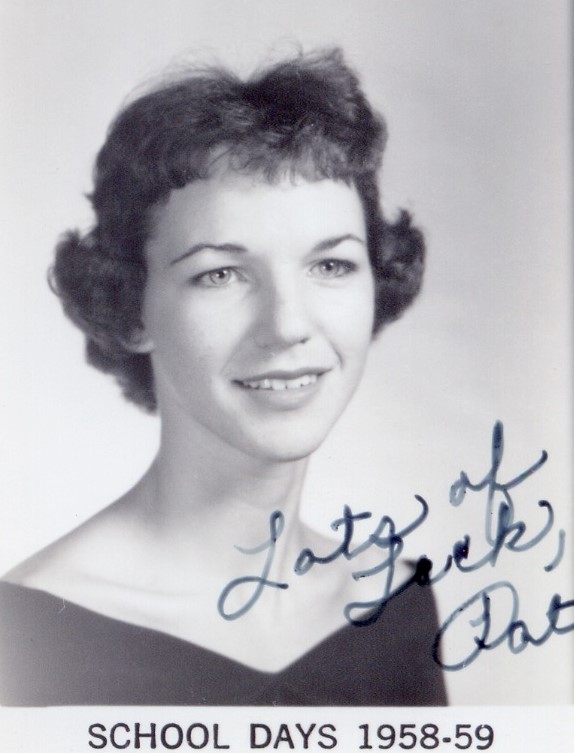 Lots of
Luck,
Pat
SCHOOL DAYS 1958-59